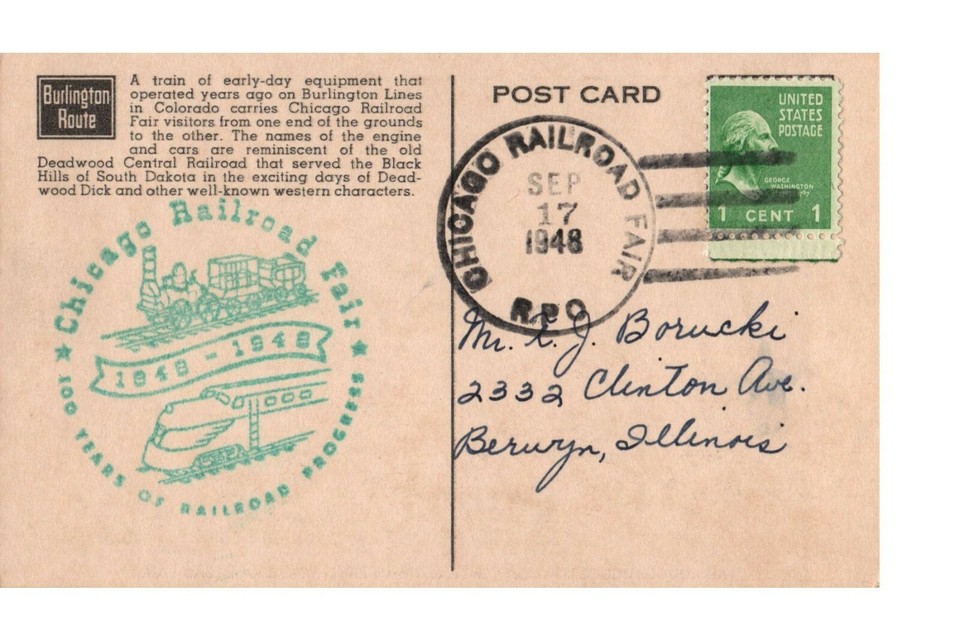 Burlington
Route
A train of early-day equipment that
operated years ago on Burlington Lines
in Colorado carries Chicago Railroad
Fair visitors from one end of the grounds
to the other. The names of the engine
and cars are reminiscent of the old
Deadwood Central Railroad that served the Black
Hills of South Dakota in the exciting days of Dead-
wood Dick and other well-known western characters.
Chicago Railroad Fair
1848 - 1948
100 YEARS OF RAILROAD PROGRESS
POST CARD
CHICAGO RAILROAD FAIR
SEP
17
1948
R.P.O.
UNITED
STATES
POSTAGE
GEORGE
WASHINGTON
1 CENT 1
Mr. J. Borucki
2332 Clinton Ave.
Berwyn, Illinois